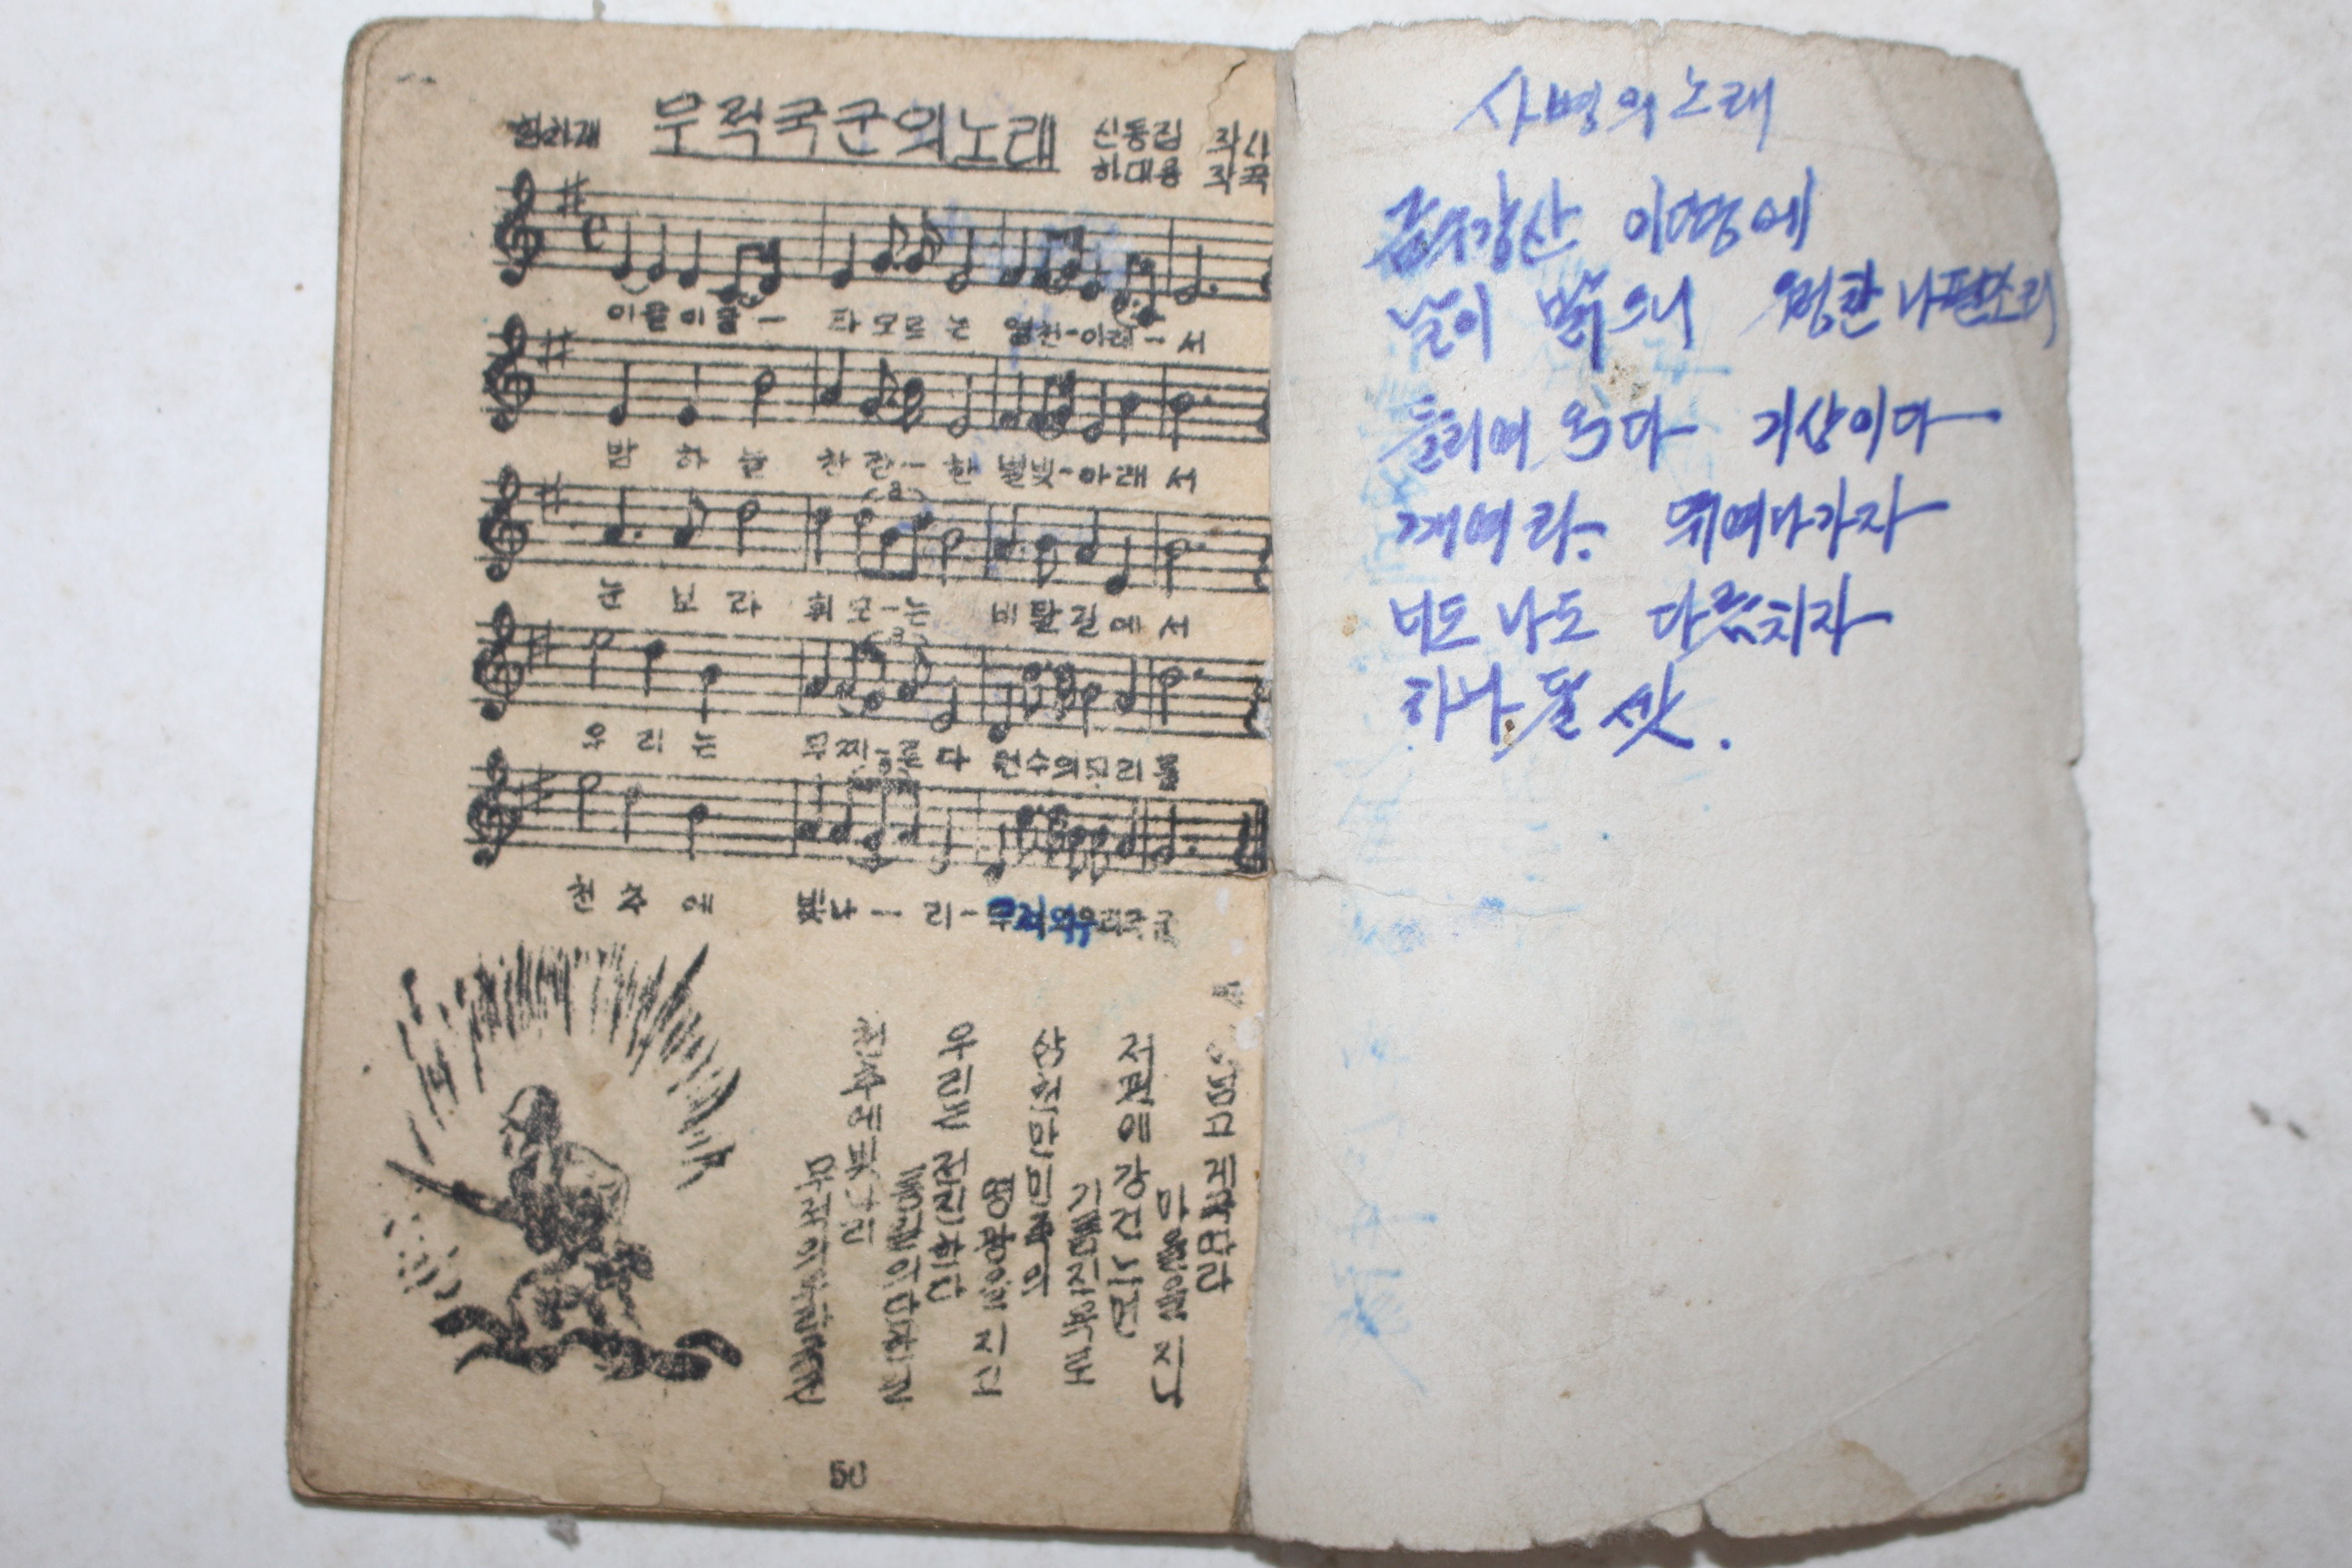 힘차게
무적국군의노래
신동집 작사
하대응 작곡
이글이글- 타오르는 영천-아래-서
밤하늘 찬란-한 별빛-아래서
눈보라 휘모-는 비탈길에서
우리는 무찌르다 원수의무리를
천추에 빛나-리-무적의우리국군
저편에 강건느면
기름진옥토
삼천만민족의
영광을지고
우리는전진한다
천추에빛나리
50
사병의노래
금수강산 이땅에
날이 밝으니 우렁찬나팔소리
들리여 온다 기상이다
깨여라. 뛰여나가자
너도나도 다름치자
하나둘셋.